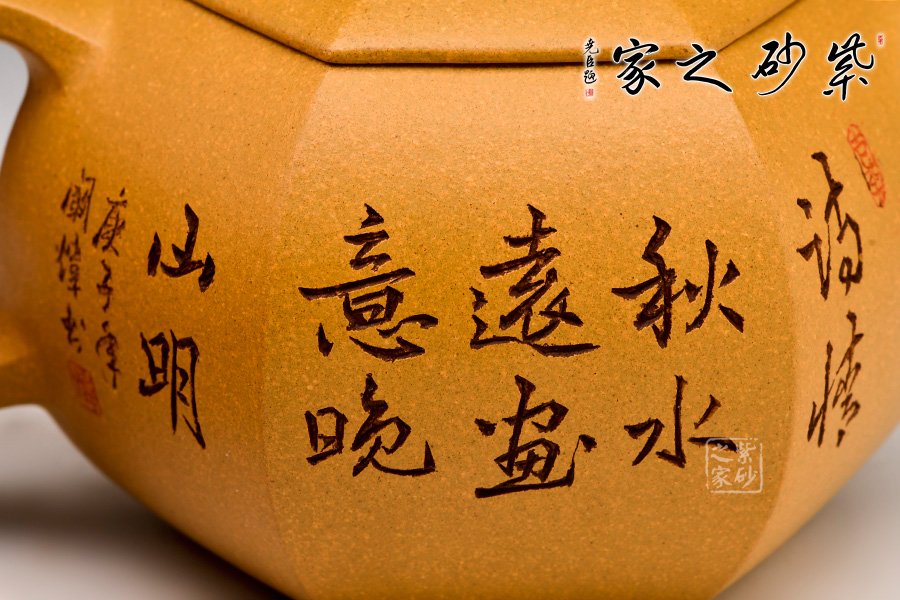 紫砂之家
尧臣题
诗情
秋水
遠画
意晚
山明
庚子年
紫砂之家